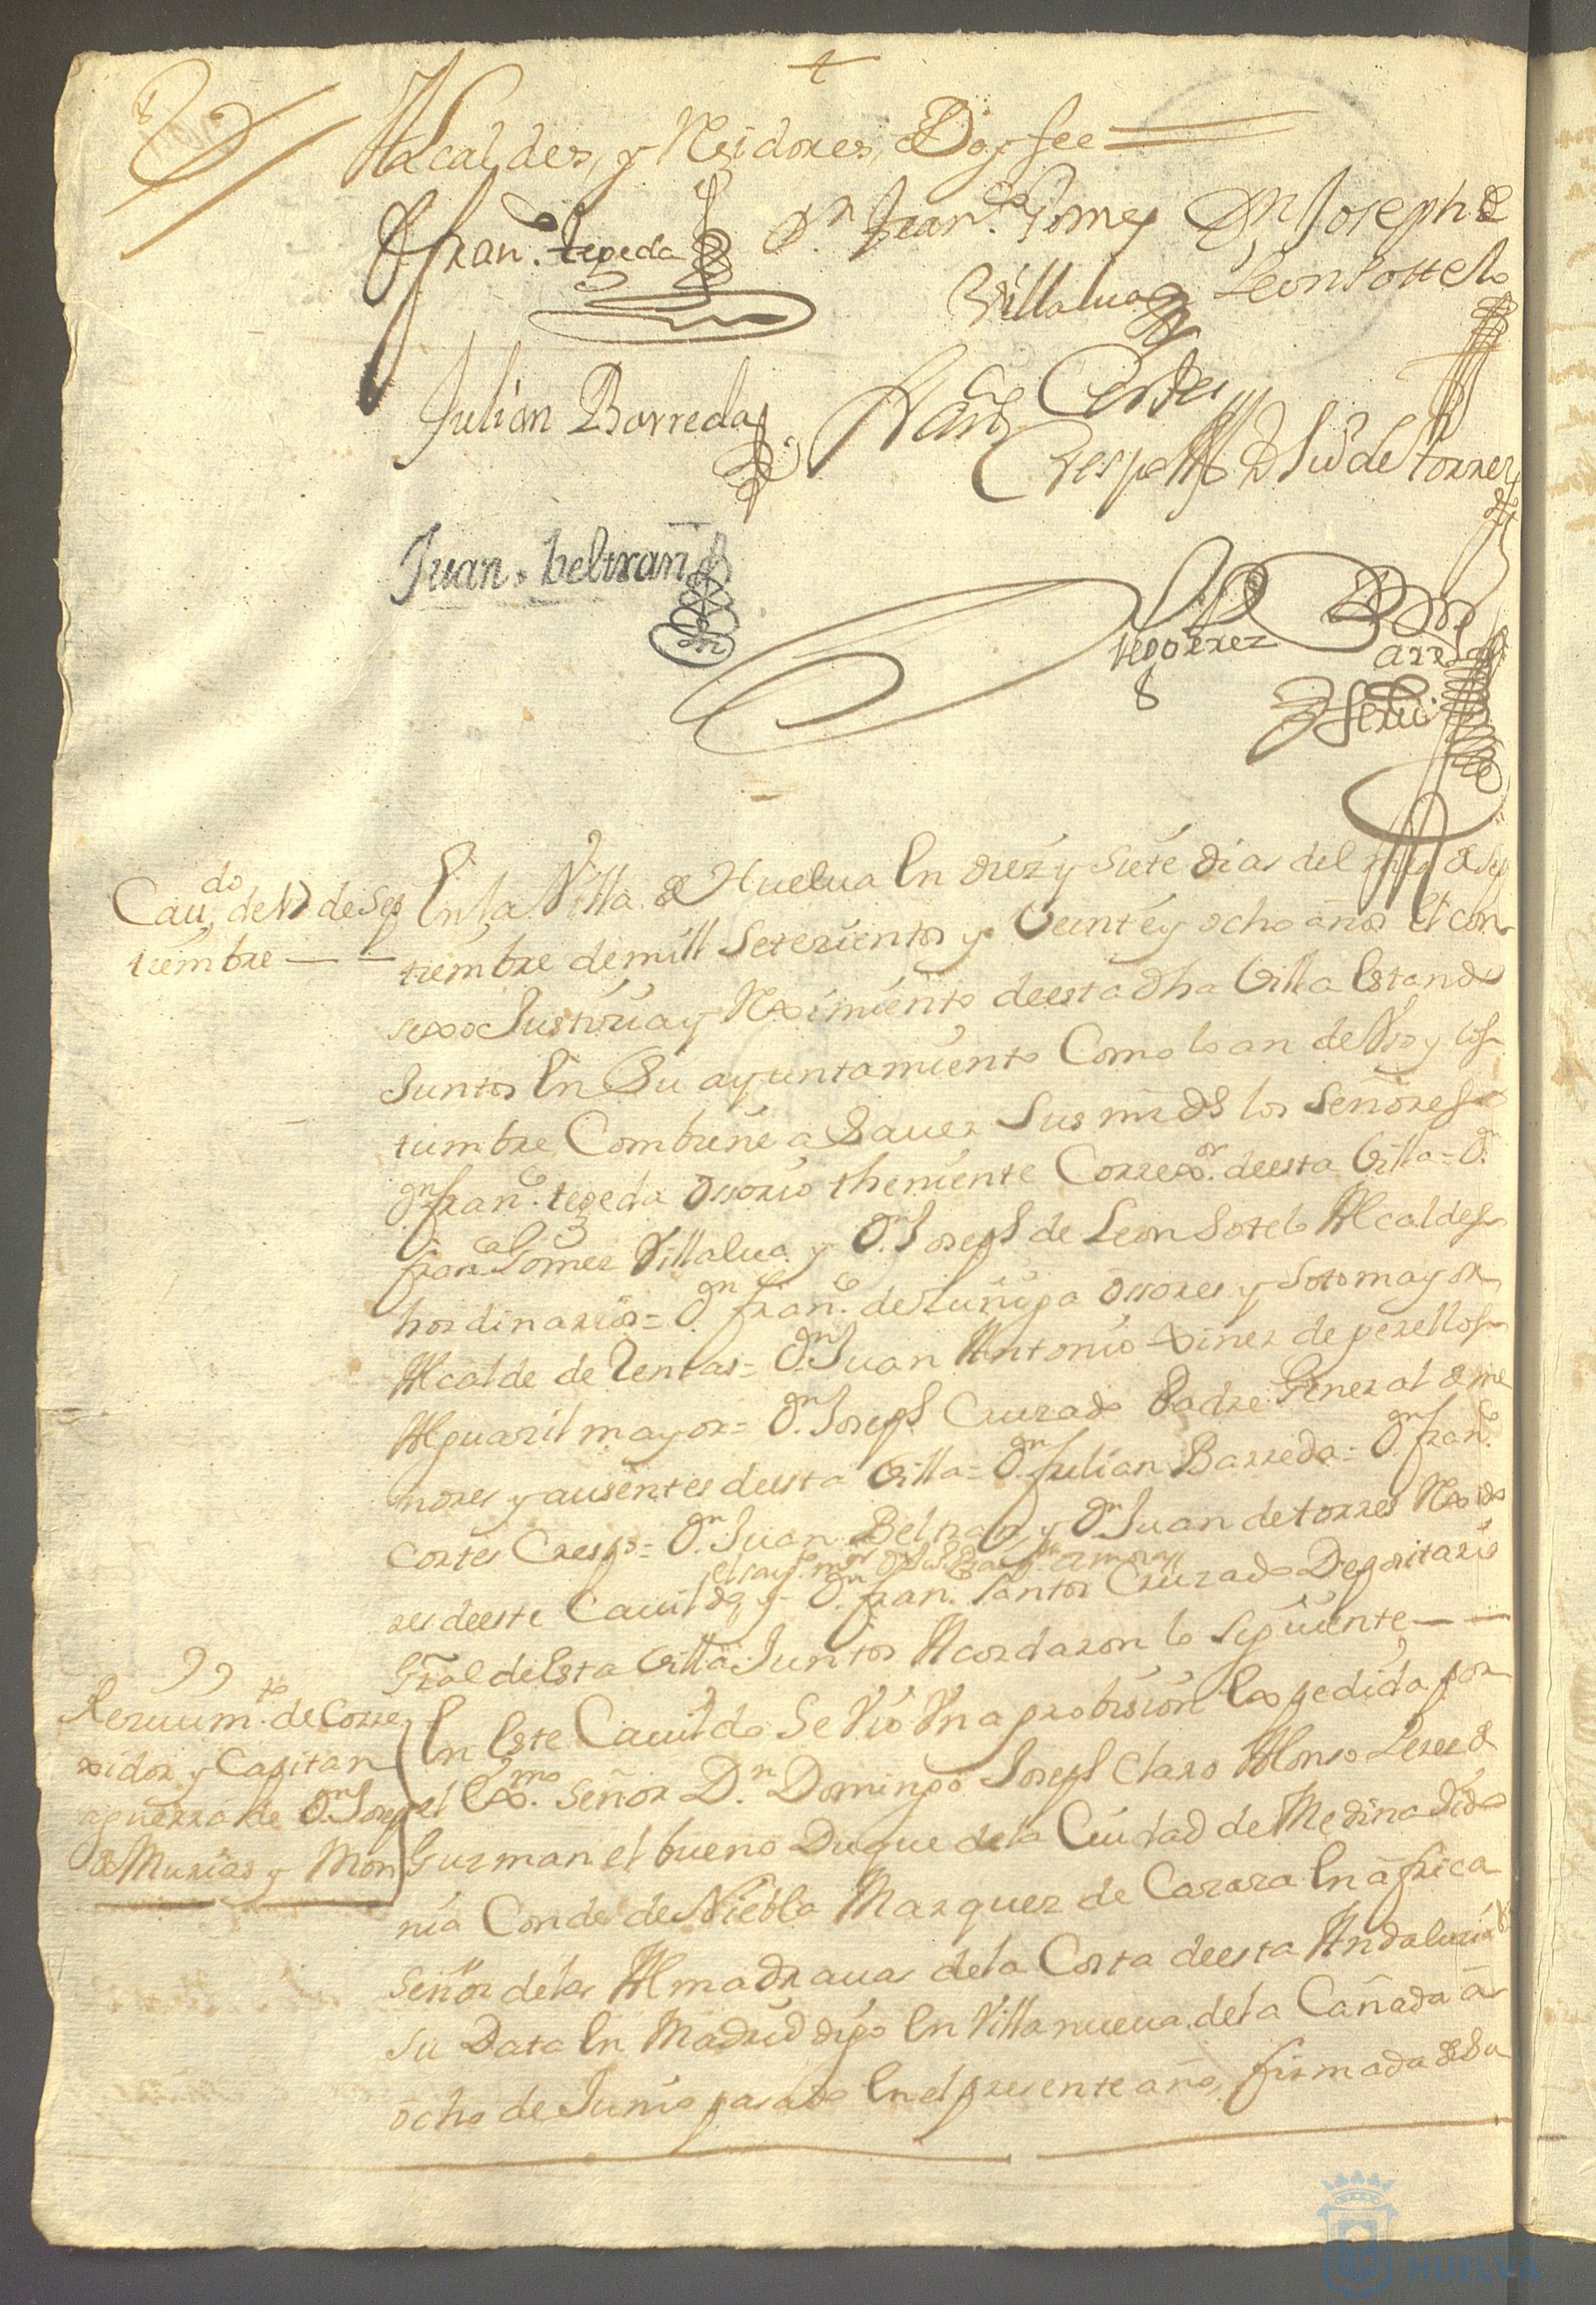 +
Alcaldes, y Rexidores, Doy fee
Dn. Franco. tepeda
Dn. Franco. Gomez
Villalua
Dn. Joseph de
Leon Sottelo
Julian Barreda
Franco. Cortes
Crespo
D Jun de torres
Juan. beltran
Diego Perez
Caudo. de 17 de Sep
tiembre
En la Villa de Huelua En diez y Siete dias del mes de Sep
tiembre de mill Setezientos y Veinte y ocho años El Con
sexo Justizia y Reximiento de esta dha Villa Estando
Juntos En Su ayuntamiento Como lo an de Vso y Cos
tumbre Combiene a Sauer Sus mrds los Señores
Dn. franco. tepeda Ossorio theniente Correxor. de esta Villa = Dn.
franco. Gomez Villalua y Dn. Joseph de Leon Sotelo Alcaldes
hordinarios = Dn. franco. de Zuñiga Ossores y Sotomayor
Alcalde de Rentas = Dn. Juan Antonio Xinez de perellos
Alguazil mayor = Dn. Joseph Cruzado Padre General de me
nores y ausentes de esta Villa = Dn. Julian Barreda = Dn. franco.
Cortes Crespo = Dn. Juan Beltran y Dn. Juan de torres Rexido
res de este Cauildo y Dn. franco. Santos Cruzado Depositario
Gral de Esta Villa Juntos Acordaron lo Siguiente
Reziuimto. de Corre
xidor y Capitan
a guerra de Dn. Joseph
de Murias y Mon
En Este Cauildo Se Vio Vna probision Expedida por
el Exmo. Señor Dn. Domingo Joseph Claro Alonso Perez de
Guzman el bueno Duque de la Ciudad de Medina Sido
nia Conde de Niebla Marquez de Cazaza En africa
Señor de las Almadrauas de la Costa de esta Andaluzia
su Data En Madrid digo En Villanueua de la Cañada a
ocho de Junio pasado En el presente año, firmada de Su
HUELVA